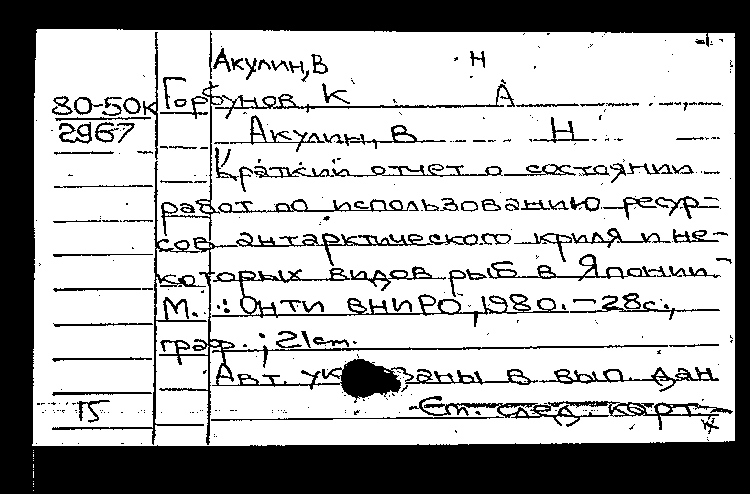 Акулин, В Н
80-50к Горбунов, К А
2967 Акулин, В Н
Краткий отчет о состоянии
работ по использованию ресур-
сов антарктического криля и не-
которых видов рыб в Японии.-
М. : ОНТИ ВНИРО, 1980. - 28с.,
граф. ; 21см.
Авт. ук заны в вып. дан
15 См. след. карт.